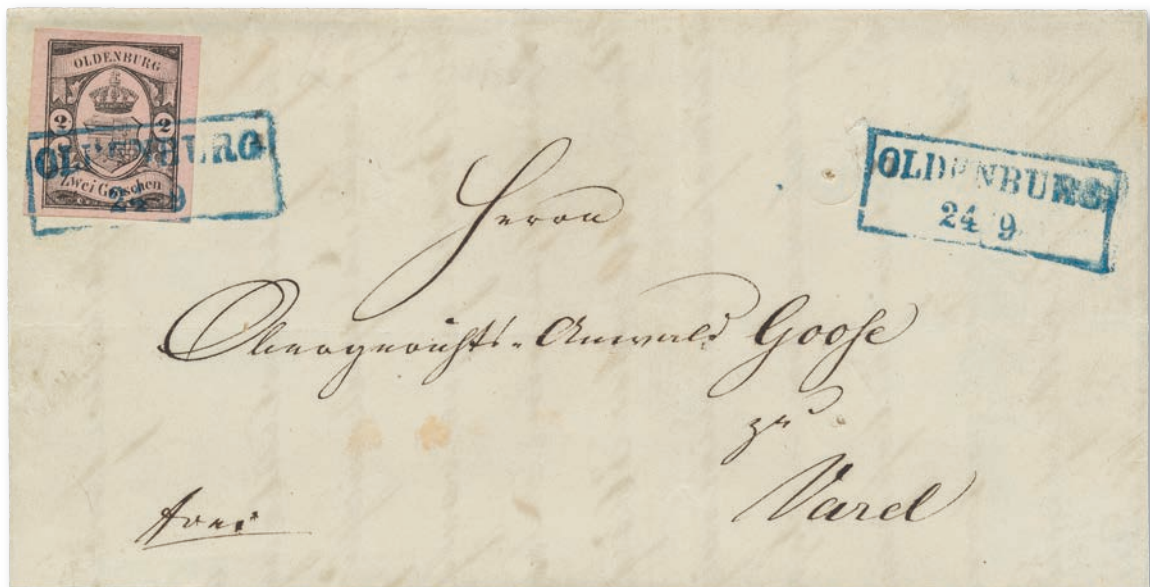 OLDENBURG
2 2
Zwei Groschen
OLDENBURG
24 9
OLDENBURG
24 9
Herrn
Obergerichts-Anwald Goose
zu
Varel
frei